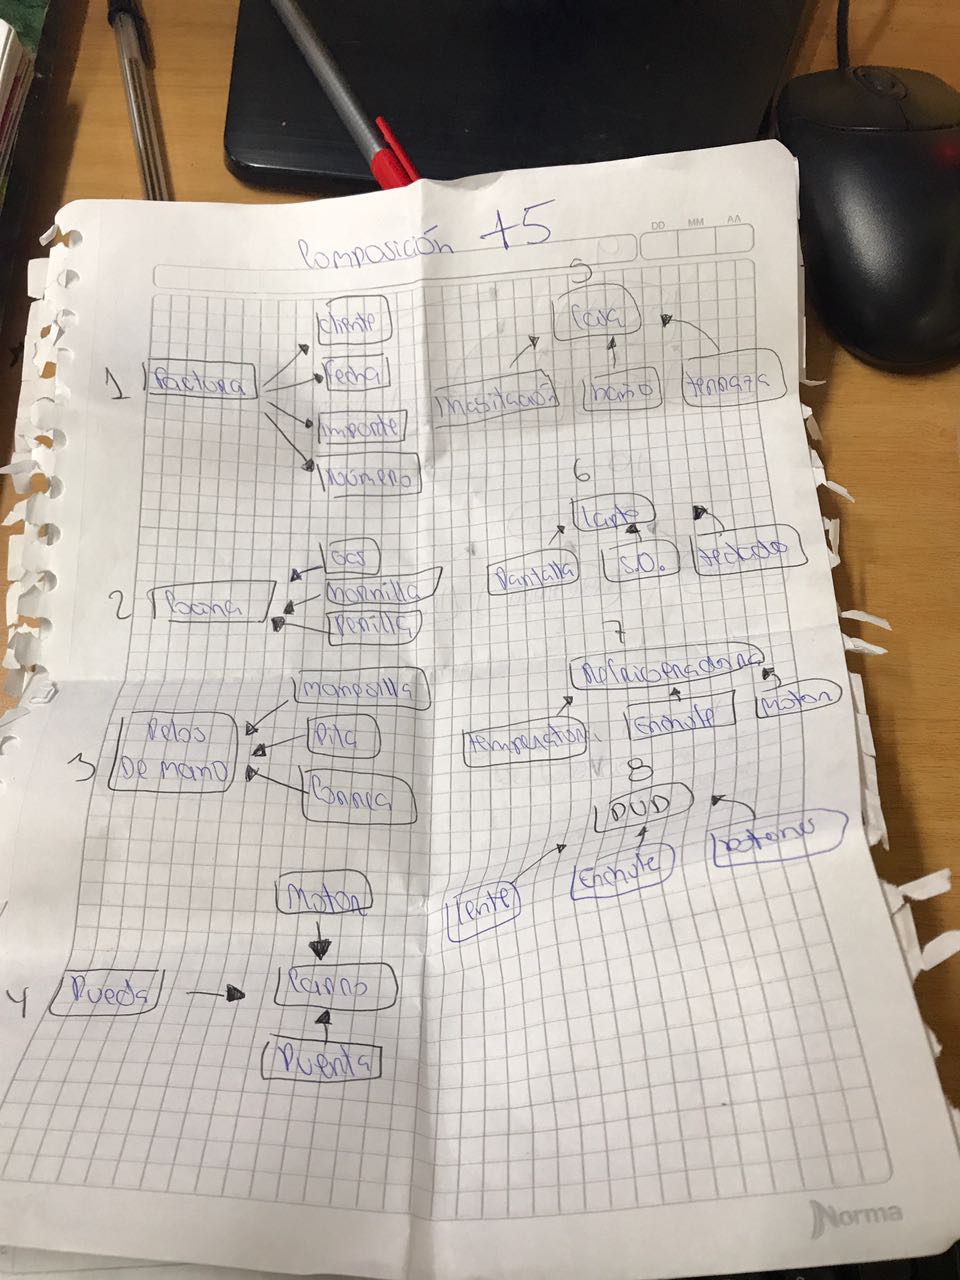 Composición +5
DD MM AA
1
Factura
Cliente
Fecha
Importe
Número
2
Cocina
Gas
Hornilla
Perilla
3
Reloj
De mano
Manecilla
Pila
Correa
4
Rueda
Motor
Carro
Puerta
5
Casa
Habitación
baño
terraza
6
Pantalla
S.O.
teclado
7
Refrigeradora
Enchufe
Motor
8
DVD
Lente
Enchufe
botones
Norma